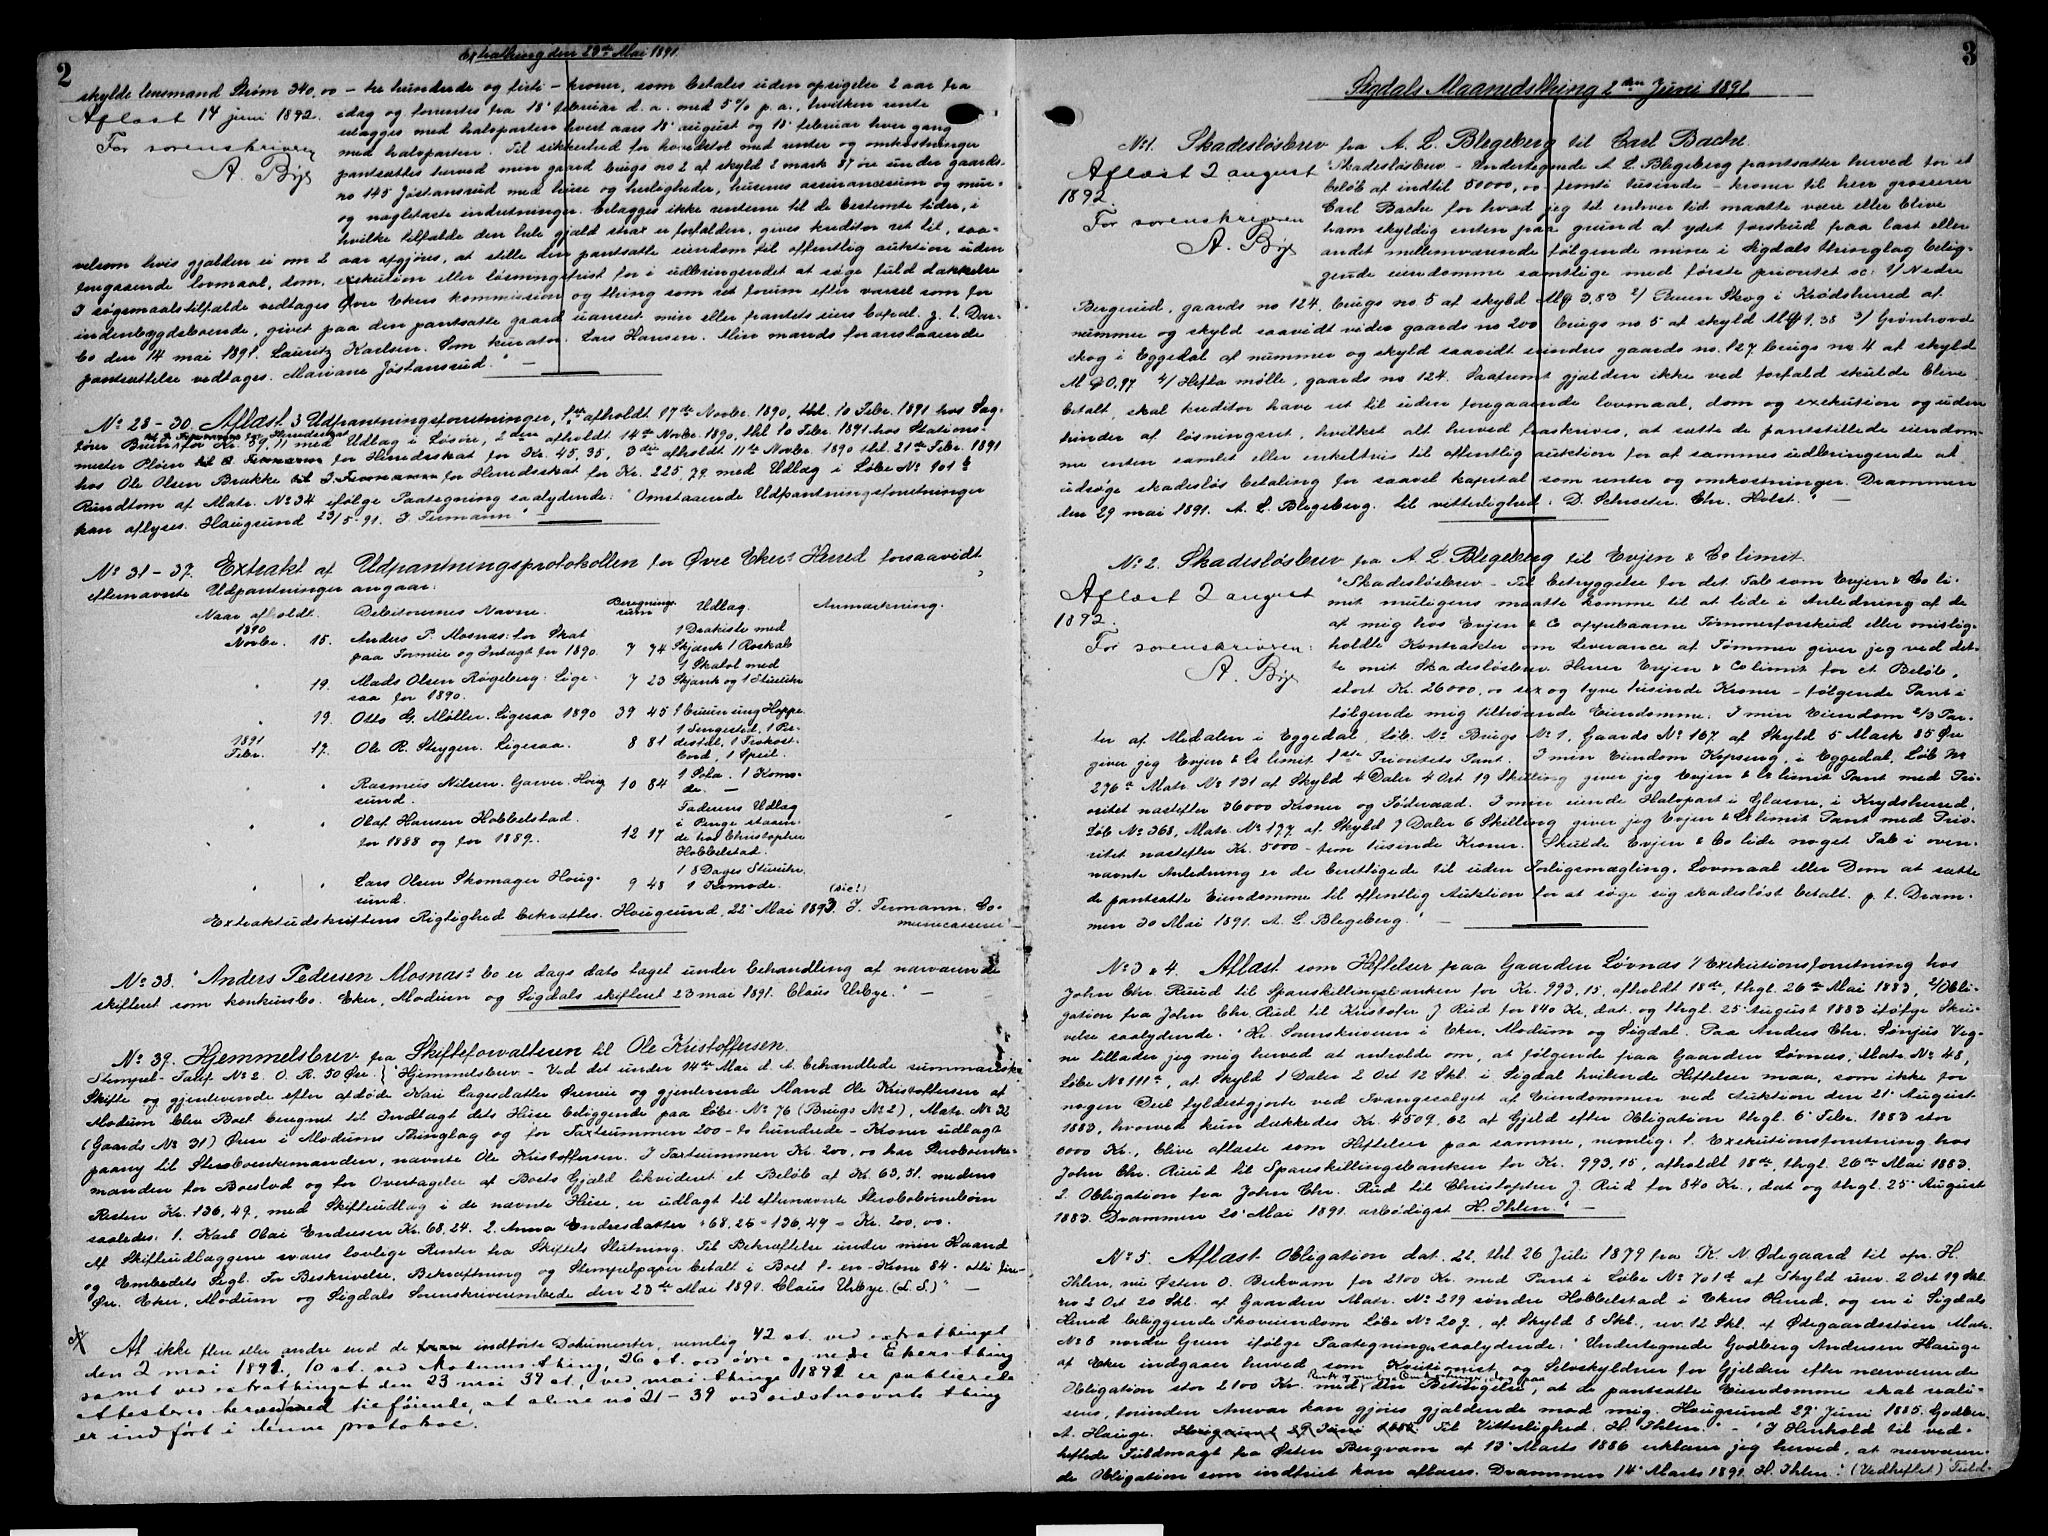 2
Extrathing den 23de Mai 1891.
skylde lensmand Strøm 340,00 – tre hundrede og firti – kroner, som betales uden opsigelse 2 aar fra
Aflæst 14 juni 1892.
For sorenskriveren
A. Bye
idag og forrentes fra 18' februar d.a. med 5% p.a., hvilken rente
erlægges med halvparten hvert aars 18' august og 18' februar hver gang
med halvparten. Til sikkerhed for hovedstol med renter og omkostninger
pantsættes herved min gaard brugs no 2 af skyld 2 mark 37 øre under gaards-
no 145 Jøstansrud med huse og herligheder, husenes assurancesum og mur-
og naglefaste indretninger. Erlægges ikke renterne til de bestemte tider, i
hvilke tilfælde den hele gjæld strax er forfalden, gives kreditor ret til, saa-
velsom hvis gjælden ei om 2 aar opgjøres, at stille den pantsatte eiendom til offentlig auktion uden
foregaaende lovmaal, dom, exekution eller løsningsfrist for i udbringendet at søge fuld dækkelse
I søgsmaalstilfælde vedtages Øvre Ekers kommission og thing som ret forum efter varsel som for
indenbygdsboende, givet paa den pantsatte gaard uanset min eller fremtids eiers bopæl. p. t. Dar-
bo den 14 mai 1891. Lauritz Karlsen. Som kurator: Lars Hansen. Min mands foranstaaende
pantsættelse vedtages. Mariane Jøstansrud." –
No 28 – 30. Aflæst 3 Udpantningsforretninger, 1ste afholdt 17de Novbr. 1890, thl. 10 Febr. 1891 hos Sag-
fører Bruun for Kr. 59,11 med Udlæg i Løsøre, 2den afholdt 14de Novbr. 1890, thl 10 Febr. 1891 hos Stations-
mester Pløen til J. Fermann for Herredsskat for Kr. 45,35, 3die afholdt 11te Novbr. 1890 thl. 21de Febr. 1891
hos Ole Olsen Brække til J. Fermann for Herredsskat for Kr. 225,79 med Udlæg i Løbe No 101 b
Rundtom af Matr. No 34 ifølge Paategning saalydende: "Omstaaende Udpantningsforretninger
kan aflyses. Haugsund 23/5-91. J. Fermann." –
No 31 – 37. Extrakt af Udpantningsprotokollen for Øvre Ekers Herred forsaavidt
efternævnte Udpantninger angaar:
Naar afholdt. Debitorernes Navne. Beregnings sum Udlæg. Anmærkning.
1890
Novbr. 15. Anders P. Mosnæs: for Skat
paa Formue og Indtægt for 1890. 7 74 1 Dragkiste med
Skjænk 1 Roskab
" 19. Mads Olsen Røgeberg: Lige-
saa for 1890. 7 23 1 Skatol med
Skjænk og 1 Stueuhr
" 19. Otto G. Møller. Ligesaa 1890 39 45 1 brun ung Hoppe
1891
Febr. 17. Ole R. Stryger. Ligesaa. 8 81 1 Sengested, 1 Pi-
destal, 1 Frokost-
bord, 1 Speil.
" " Rasmus Nilsen. Garver. Houg-
sund. 10 84 1 Sofa. 1 Komo-
de. –
" " Olaf Hansen Hobbelstad.
for 1888 og for 1889. 12 17 Faderens Udlæg
i Penge staaen-
de hos Christopher
Hobbelstad.
" " Lars Olsen Skomager Houg-
sund. 9 48 1 8 Dages Stueuhr.
1 Komode.
Extraktudskriftens Rigtighed bekræftes. Hougsund, 22' Mai 1893 (sic!) J. Fermann. Co-
municasserer –
No 38. "Anders Pedersen Mosnæs' bo er dags dato taget under behandling af nærværende
skifteret som konkursbo. Eker, Modum og Sigdals skifteret 23 mai 1891. Claus Urbye." –
No 39. Hjemmelsbrev fra Skifteforvalteren til Ole Kristoffersen.
Stempel-Tarif No 2. O. R. 50 Øre. { "Hjemmelsbrev – Ved det under 14de Mai d. A. behandlede summariske
Skifte og gjenlevende efter afdøde Kari Larsdatter Øreneie og gjenlevende Mand Ole Kristoffersen af
Modum blev Boet berugnet til Indtægt dets Huse beliggende paa Løbe-No 76 (Brugs No 2), Matr. No 32
(Gaards No 31) Øren i Modums Thinglag og for Taxtsummen 200 – to hundrede – Kroner udlagt
paany til Sterbveenkemanden, nævnte Ole Kristoffersen. I Taxtsummen Kr. 200,00 har Sterbveenke-
manden for Boeslod og for Overtagelse af Boets Gjæld likvideret et Beløb af Kr. 63,51. medens
Resten Kr. 136,49, med Skifteudlæg i de nævnte Huse, er udlagt til efternævnte Sterbobørnebørn
saaledes: 1. Karl Olai Endresen Kr. 68,24. 2. Anna Endresdatter " 68,25 = 136,49 = Kr. 200,00.
Af Skifteudlæggene svares lovlige Renter fra Skiftets Slutning. Til Bekræftelse under min Haand
og Embedets Segl. For Beskrivelse, Bekræftning og Stempelpapir betalt i Boet 1 – en – Krone 84 – otti fire –
Øre. Eker, Modum og Sigdals Sorenskriverembede den 23de Mai 1891. Claus Urbye. (L. S.)" –
At ikke flere eller andre end de indførte Dokumenter, nemlig 42 st. ved extrathinget
den 2 mai 1891, 10 st. ved Modums thing, 26 st. ved øvre & nedre Ekers thing
samt ved extrathinget den 23 mai 39 st., ved mai thinge 1891 er publicerede
Attesteres herved med tilføiende, at alene no 21–39 ved sidstnævnte thing
er indført i denne protokol.
3
Sigdals Maanedsthing 2den Juni 1891
No 1. Skadesløsbrev fra A. L. Blegeberg til Carl Bache.
Aflæst 2 august
1892.
For sorenskriveren
A. Bye
"Skadesløsbrev – Undertegnede A. L. Blegeberg pantsætter herved for et
beløb af indtil 50000,00 femti tusinde – kroner til herr grosserer
Carl Bache for hvad jeg til enhver tid maatte være eller blive
ham skyldig enten paa grund af ydet forskud paa last eller
andet mellemværende følgende mine i Sigdals thinglag belig-
gende eiendomme samtlige med første prioritet sc: 1/ Nedre
Bergerud, gaards no 124, brugs no. 5 af skyld M 3,83 2/ Skog i Krødsherred af
nummer og skyld saavidt vides gaards no 200 brugs no 5 af skyld M 1,38 3/ Grønhovd
skog i Eggedal af nummer og skyld saavidt erindres gaards no. 127 brugs no 4 af skyld
M 0,97 4/ Hefta mølle, gaards no 124. Saafremt gjælden ikke ved forfald skulde blive
betalt, skal kreditor have ret til uden foregaaende lovmaal, dom og exekution og uden
hinder af løsningsret, hvilket alt herved fraskrives, at sætte de pantstillede eiendom-
me enten samlet eller enkeltvis til offentlig auktion for af sammes udbringende at
udsøge skadesløs betaling for saavel kapital som renter og omkostninger. Drammen
den 29 mai 1891. A. L. Blegeberg. til vitterlighed: D. Schroeter. Chr. Holst." –
No 2. Skadesløsbrev fra A. L. Blegeberg til Evjen & Co limit.
Aflæst 2 august
1892.
For sorenskriveren:
A. Bye
"Skadesløsbrev – Til betryggelse for det Tab som Evjen & Co li-
mit muligens maatte komme til at lide i Anledning af de
af mig hos Evjen & Co oppebaarne Tømmerforskud eller mislig-
holdte Kontrakter om Leverance af Tømmer giver jeg ved det-
te mit Skadesløsbrev Herrer Evjen & Co limit for et Beløb,
stort Kr. 26000,00 sex og tyve tusinde Kroner – følgende Pant i
følgende mig tilhørende Eiendomme: I min Eiendom 2/3 Par-
ter af Medalen i Eggedal, Løb. No Brugs No 1, Gaards No 167 af Skyld 5 Mark 85 Øre
giver jeg Evjen & Co limit 1ste Prioritets Pant. I min Eiendom Kopseng, i Eggedal, Løb No
276a Matr. No 131 af Skyld 4 Daler 4 Ort 19 Skilling giver jeg Evjen & Co limit Pant med Pri-
oritet næstefter 36000 Kroner og Føderaad. I min eiende Halvpart i Glesne, i Krydsherred,
Løb No 368, Matr. No 177 af Skyld 7 Daler 6 Skilling giver jeg Evjen & Co limit Pant med Prio-
ritet næstefter Kr. 5000 – fem tusinde Kroner. Skulde Evjen & Co lide noget Tab i oven-
nævnte Anledning er de berettigede til uden Forligsmægling, Lovmaal eller Dom at sætte
de pantsatte Eiendomme til offentlig Auktion for at søge sig skadesløst betalt. p. t. Dram-
men 30 Mai 1891. A. L. Blegeberg." –
No 3 & 4. Aflæst som Heftelser paa Gaarden Løvnæs 1/ Exekutionsforretning hos
John Chr. Ruud til Spareskillingsbanken for Kr. 993,15, afholdt 18de, thgl. 26de Mai 1883, 2/ Obli-
gation fra John Chr. Rud til Kristofer J Rud for 840 Kr., dat. og thgl. 25 August 1883 ifølge Skri-
velse saalydende: "Hr. Sorenskriveren i Eker, Modum og Sigdal. Paa Anders Chr. Lønjus Veg-
ne tillader jeg mig herved at anholde om, at følgende paa Gaarden Løvnæs, Matr. No 48,
Løbe No 111a, af Skyld 1 Daler 2 Ort 12 Skl. i Sigdal hvilende Heftelser maa, som ikke for
nogen Deel fyldestgjorte ved Tvangssalget af Eiendommen ved Auktion den 21' August
1883, hvorved kun dækkedes Kr. 4509,62 af Gjeld efter Obligation thgl. 6' Febr. 1883 stor
6000 Kr., blive aflæste som Heftelser paa samme, nemlig: 1. Exekutionsforretning hos
John Chr. Ruud til Sparskillingsbanken for Kr. 993,15, afholdt 18de, thgl. 26de Mai 1883.
2. Obligation fra John Chr. Rud til Christopher J. Rud for 840 Kr., dat og thgl. 25' August
1883. Drammen 20' Mai 1891. ærbødigst H. Ihlen." –
No 5. Aflæst Obligation dat. 22, thl. 26 Juli 1879 fra K. N. Ødegaard til ofr. H.
Ihlen, nu Østen O. Berkvam for 2100 Kr. med Pant i Løbe No 701d af Skyld urev. 2 Ort 19 Skl.
rev 2 Ort 20 Skl. af Gaarden Matr. No 219 søndre Hobbelstad i Ekers Herred, og en i Sigdals
Herred beliggende Skoveiendom Løbe No 209, af Skyld 8 Skl., rev. 12 Skl. af Ødegaardsstøen Matr.
No 8 nordre Gren ifølge Paategninger saalydende: "Undertegnede Godberg Andersen Hauge
af Eker indgaar herved som Kautionist og Selvskyldner for Gjelden efter nærværende
Obligation stor 2100 Kr. med Rente og mulige Omkostninger, dog paa den Betingelse, at de pantsatte Eiendomme skal reali-
seres, forinden Ansvar kan gjøres gjældende mod mig. Haugsund 29' Juni 1885. Godber
A. Hauge. Haugsund 29 Juni 1885. Til Vitterlighed: H. Ihlen." – "I Henhold til ved-
heftede Fuldmagt fra Østen Bergvam af 13' Marts 1886 erklærer jeg herved, at nærværen-
de Obligation som indfriet kan aflæses. Drammen 14' Marts 1891. H. Ihlen." (Vedheftet) "Fuld-